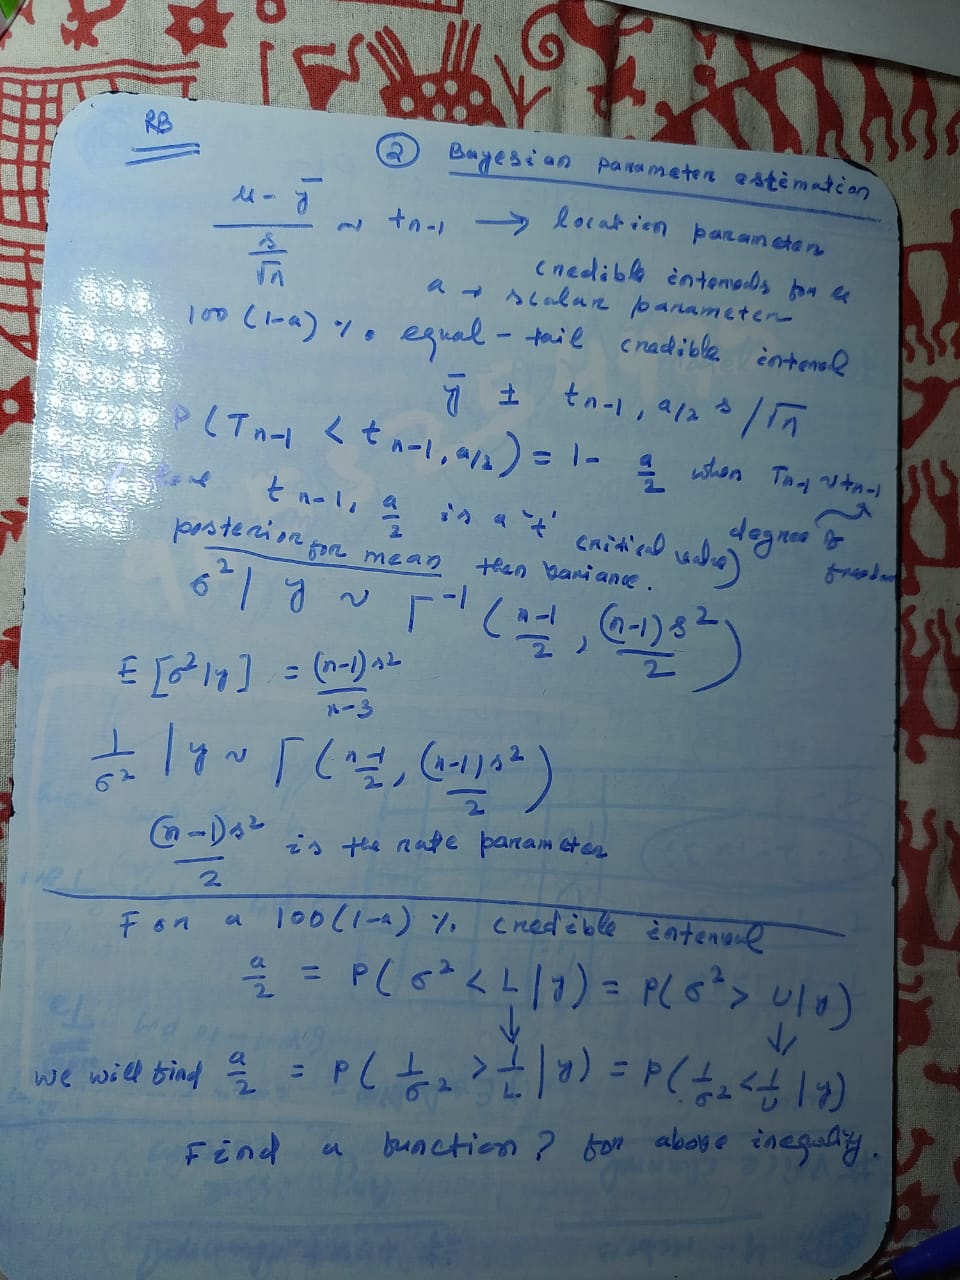 RB
② Bayesian parameter estimation
μ - ȳ / (s/√n) ~ t n-1 → location parameter
credible intervals for a
a → scalar parameter
100 (1-a) % equal-tail credible interval
ȳ ± t n-1, a/2 s/√n
P(T n-1 < t n-1, a/2) = 1 - a/2 when T n-1 ~ t n-1
t n-1, a/2 is a 't' critical value) degree of freedom
posterior for mean then variance.
σ² | y ~ Γ⁻¹ ( (n-1)/2 , (n-1)s²/2 )
E [σ²|y] = (n-1)s² / n-3
1/σ² | y ~ Γ ( (n-1)/2, (n-1)s²/2 )
(n-1)s²/2 is the rate parameter
For a 100(1-a) % credible interval
a/2 = P(σ² < L | y) = P(σ² > U | y)
↓ ↓
we will find a/2 = P( 1/σ² > 1/L | y) = P( 1/σ² < 1/U | y)
Find a function? for above inequality.